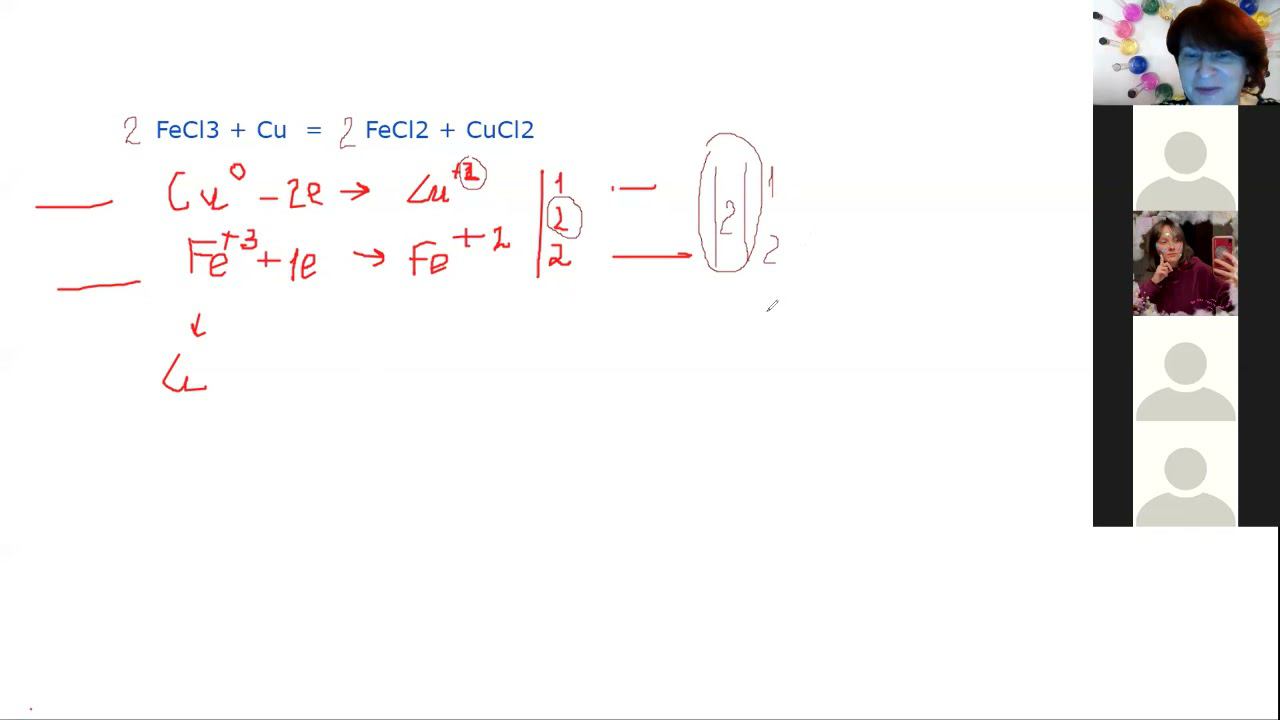 2 FeCl3 + Cu = 2 FeCl2 + CuCl2
Cu⁰ - 2e → Cu⁺² | 1 1
2 2
Fe⁺³ + 1e → Fe⁺² | 2 2